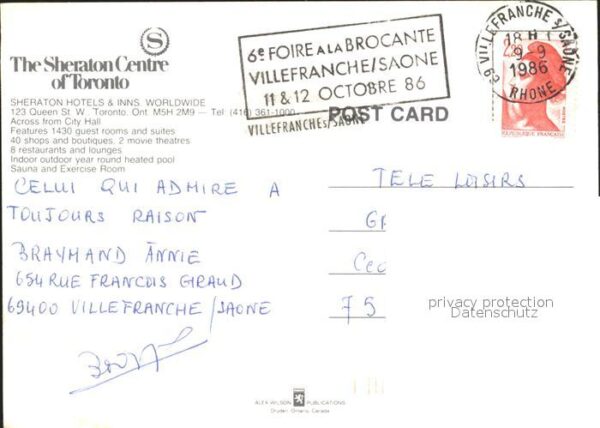 The Sheraton Centre
of Toronto
SHERATON HOTELS & INNS, WORLDWIDE
123 Queen St. W., Toronto, Ont. M5H 2M9 — Tel (416) 361-1000
Across from City Hall
Features 1430 guest rooms and suites
40 shops and boutiques, 2 movie theatres
8 restaurants and lounges
Indoor outdoor year round heated pool
Sauna and Exercise Room
6e FOIRE A LA BROCANTE
VILLEFRANCHE/SAONE
11 & 12 OCTOBRE 86
VILLEFRANCHE S/SAONE
POST CARD
69 VILLEFRANCHE S/SAONE
18 H
9-9
1986
RHONE
2,20
REPUBLIQUE FRANÇAISE
CELUI QUI ADMIRE A
TOUJOURS RAISON
BRAYMAND ANNIE
654 RUE FRANCOIS GIRAUD
69400 VILLEFRANCHE/SAONE
TELE LOISIRS
75
privacy protection
Datenschutz
ALEX WILSON PUBLICATIONS
Dryden, Ontario, Canada